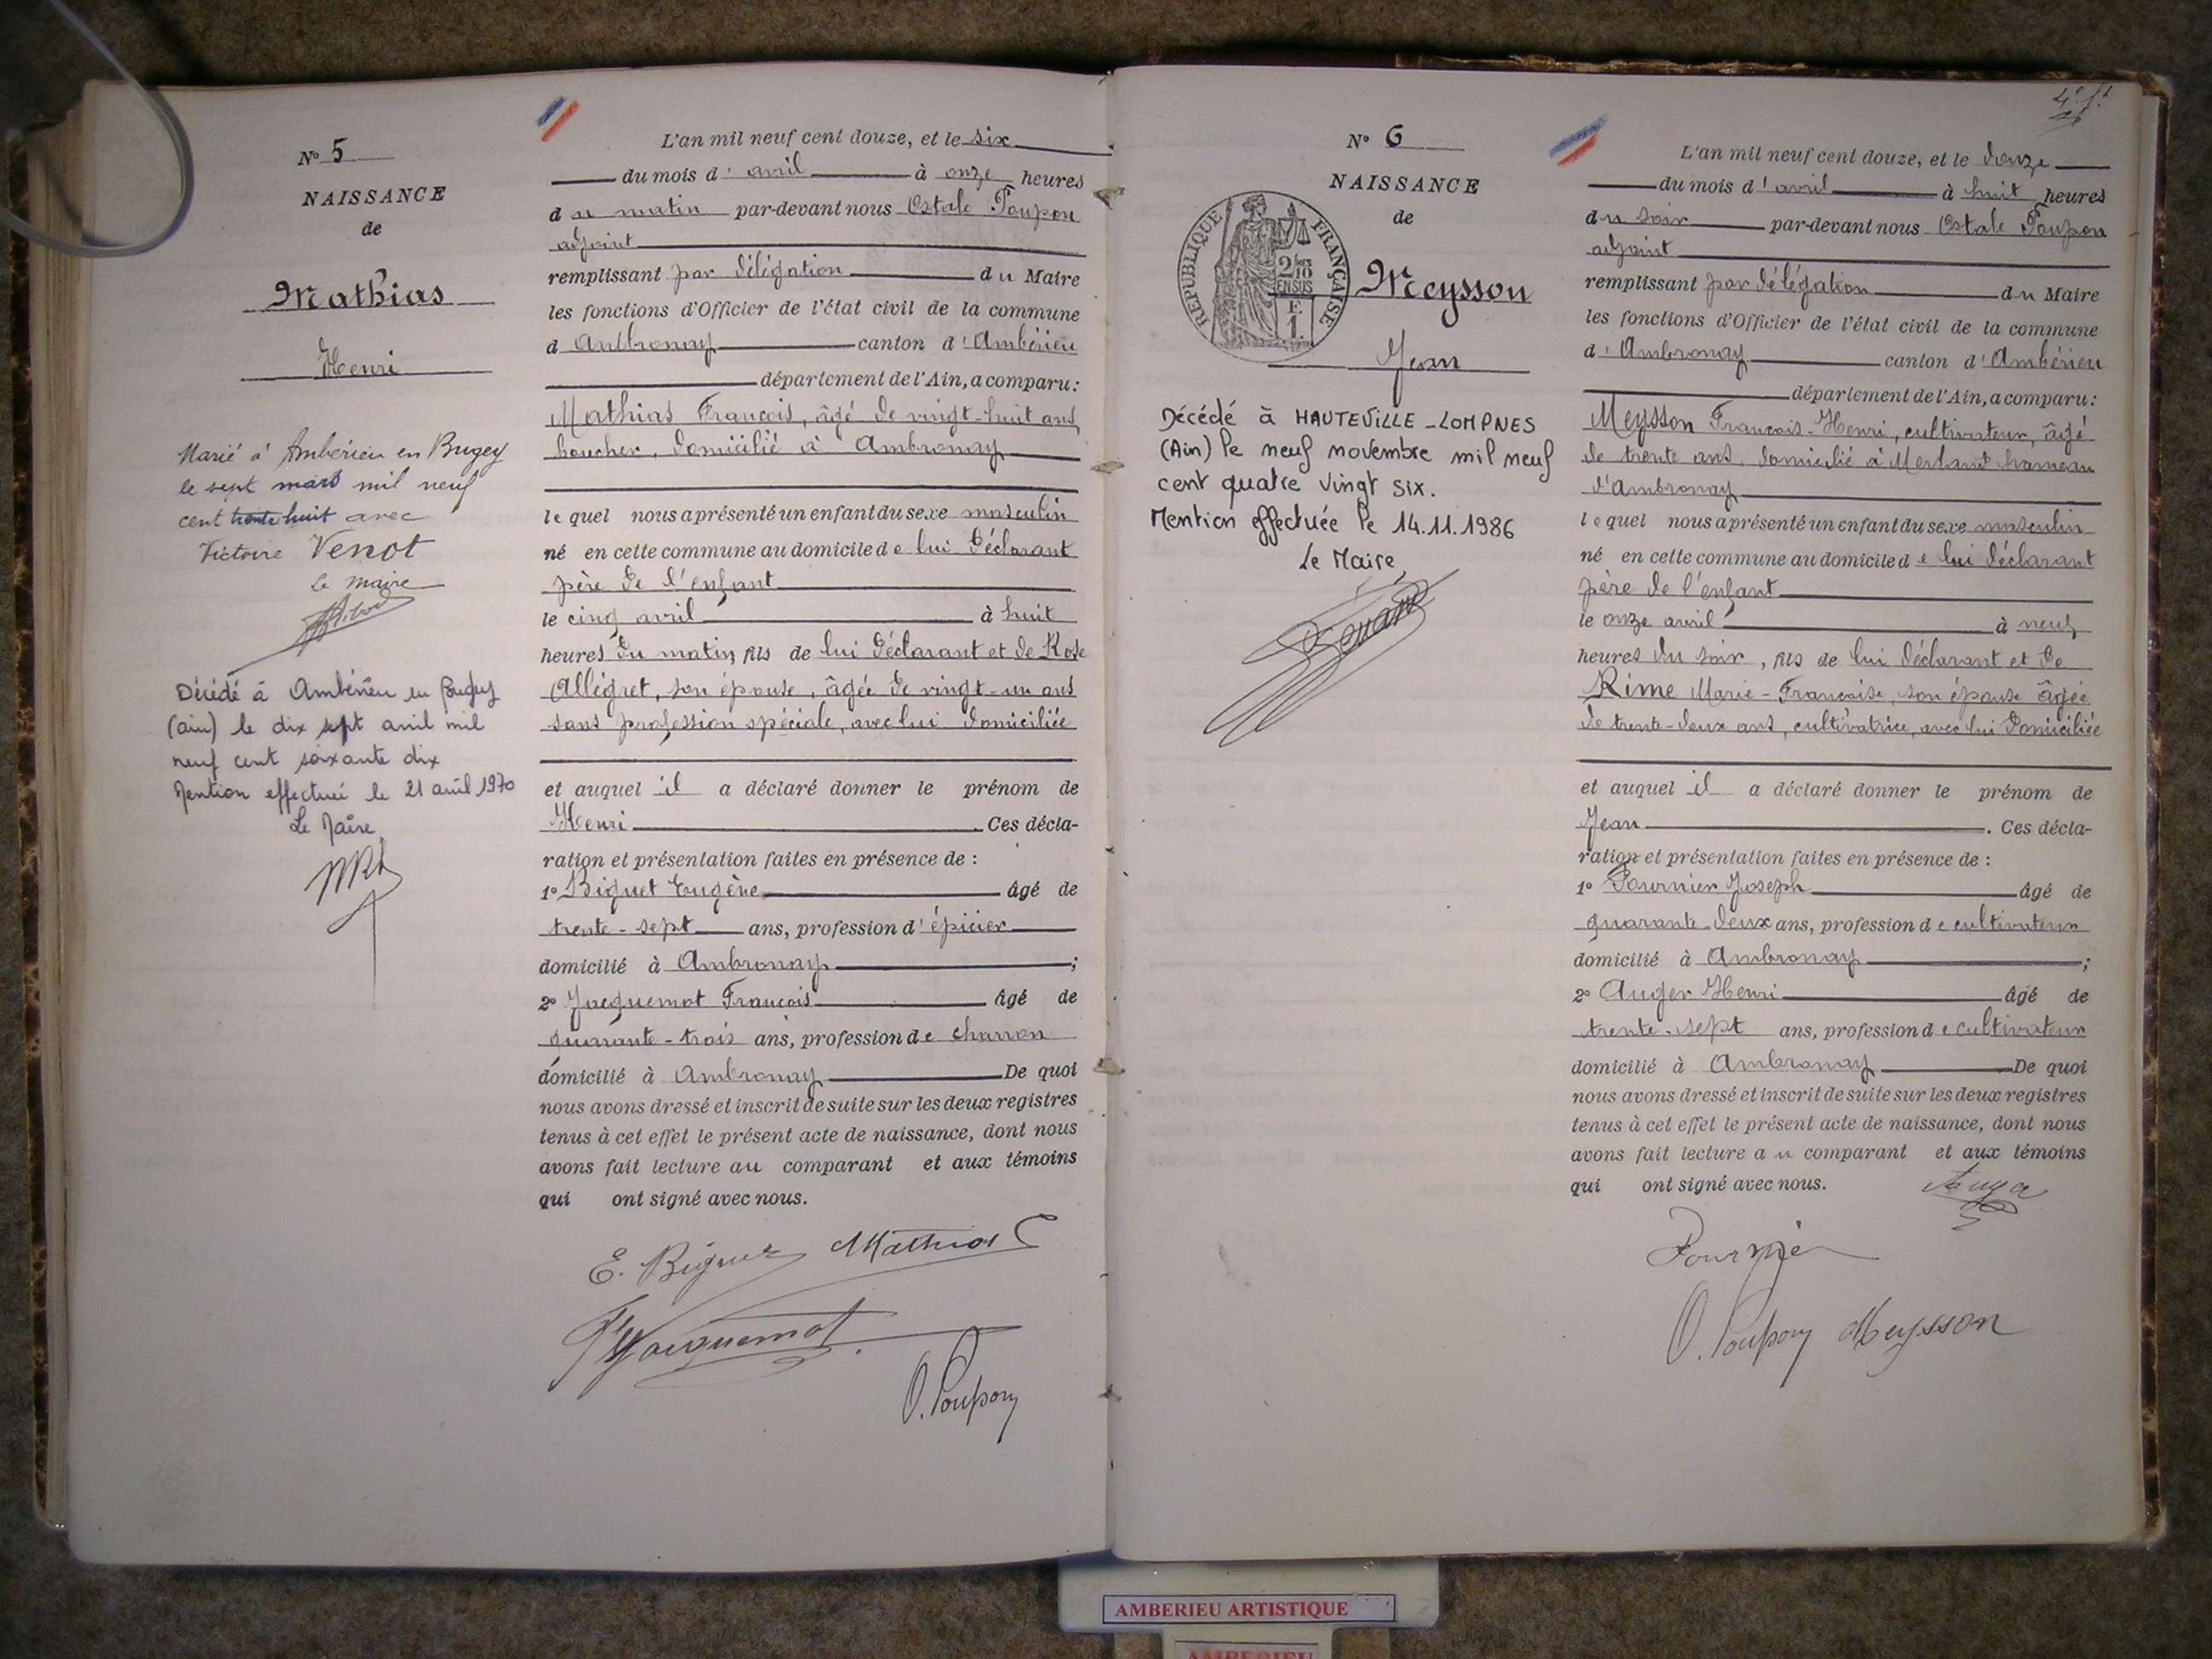 N° 5
NAISSANCE
de
Mathias
Henri
Marié à Ambérieu en Bugey
le sept mars mil neuf
cent trente huit avec
Victoire Venot
Le maire
Décédé à Ambérieu en Bugey
(ain) le dix sept avril mil
neuf cent soixante dix
Mention effectuée le 21 avril 1970
Le Maire,
L'an mil neuf cent douze, et le six
du mois d'avril à onze heures
du matin par-devant nous Ostale Poupon
adjoint
remplissant par délégation du Maire
les fonctions d'Officier de l'état civil de la commune
d Ambronay canton d'Ambérieu
département de l'Ain, a comparu :
Mathias François, âgé de vingt-huit ans,
boucher, domicilié à Ambronay
lequel nous a présenté un enfant du sexe masculin
né en cette commune au domicile de lui déclarant
père de l'enfant
le cinq avril à huit
heures du matin, fils de lui déclarant et de Rose
Allégret, son épouse, âgée de vingt-un ans
sans profession spéciale, avec lui domiciliée
et auquel il a déclaré donner le prénom de
Henri. Ces décla-
ration et présentation faites en présence de :
1° Biguet Eugène âgé de
trente-sept ans, profession d'épicier
domicilié à Ambronay ;
2° Jacquemot François âgé de
quarante-trois ans, profession de charron
domicilié à Ambronay De quoi
nous avons dressé et inscrit de suite sur les deux registres
tenus à cet effet le présent acte de naissance, dont nous
avons fait lecture au comparant et aux témoins
qui ont signé avec nous.
E. Biguet Mathias
F Jacquemot
O. Poupon
N° 6
NAISSANCE
de
RÉPUBLIQUE FRANÇAISE
2/10
EN SUS
F.
1.
Meysson
Jean
Décédé à HAUTEVILLE-LOMPNES
(Ain) le neuf novembre mil neuf
cent quatre vingt six.
Mention effectuée le 14.11.1986
Le Maire,
L'an mil neuf cent douze, et le douze
du mois d'avril à huit heures
du soir par-devant nous Ostale Poupon
adjoint
remplissant par délégation du Maire
les fonctions d'Officier de l'état civil de la commune
d'Ambronay canton d'Ambérieu
département de l'Ain, a comparu :
Meysson François-Henri, cultivateur, âgé
de trente ans, domicilié à Merland hameau
d'Ambronay
lequel nous a présenté un enfant du sexe masculin
né en cette commune au domicile de lui déclarant
père de l'enfant
le onze avril à neuf
heures du soir, fils de lui déclarant et de
Rime Marie-Françoise, son épouse âgée
de trente-deux ans, cultivatrice, avec lui domiciliée
et auquel il a déclaré donner le prénom de
Jean. Ces décla-
ration et présentation faites en présence de :
1° Fournier Joseph âgé de
quarante-deux ans, profession de cultivateur
domicilié à Ambronay ;
2° Auger Henri âgé de
trente-sept ans, profession de cultivateur
domicilié à Ambronay De quoi
nous avons dressé et inscrit de suite sur les deux registres
tenus à cet effet le présent acte de naissance, dont nous
avons fait lecture au comparant et aux témoins
qui ont signé avec nous.
Fournier
O. Poupon Meysson
AMBERIEU ARTISTIQUE
AMBERIEU